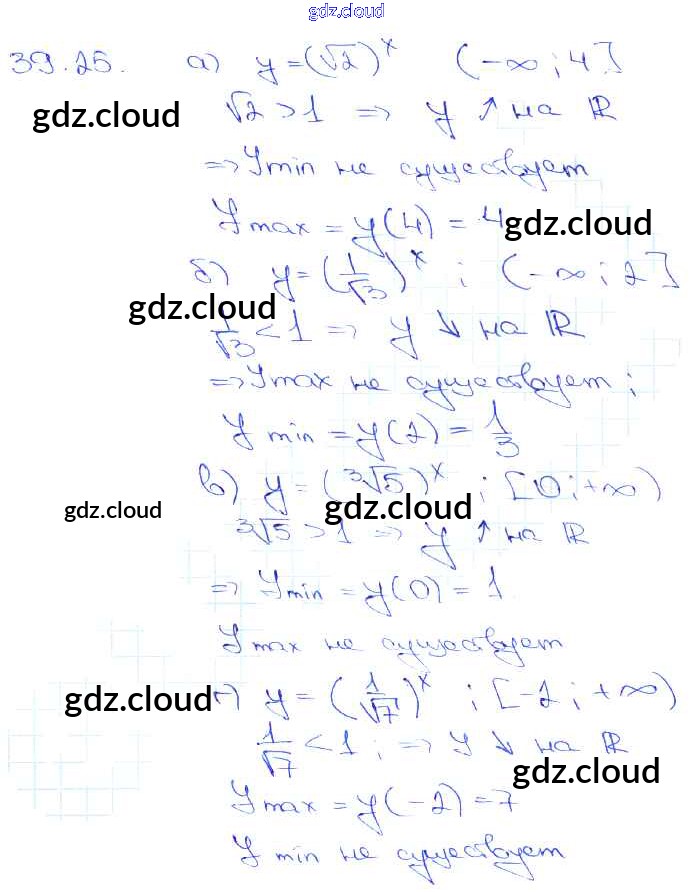 gdz.cloud
39.25. а) y=(√2)^x (-∞; 4]
√2 > 1 => y ↑ на ℝ
gdz.cloud
=> y min не существует
y max = y(4) = 4
gdz.cloud
б) y=(1/√3)^x ; (-∞; 2]
gdz.cloud
1/√3 < 1 => y ↓ на ℝ
=> y max не существует;
y min = y(2) = 1/3
в) y = (∛5)^x ; [0; +∞)
gdz.cloud gdz.cloud
∛5 > 1 => y ↑ на ℝ
=> y min = y(0) = 1
y max не существует
gdz.cloud
г) y = (1/√7)^x ; [-2; +∞)
1/√7 < 1; => y ↓ на ℝ
gdz.cloud
y max = y(-2) = 7
y min не существует